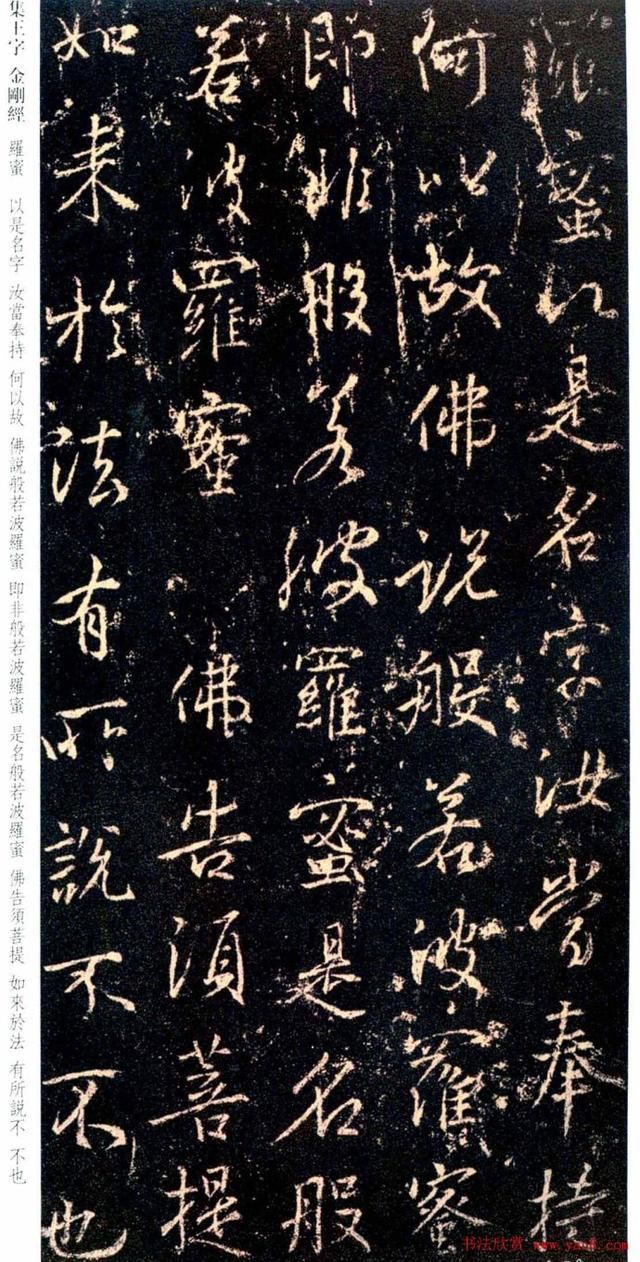 羅蜜以是名字汝當奉持
何以故佛説般若波羅蜜
即非般若波羅蜜是名般
若波羅蜜佛告須菩提
如来於法有所說不不也
集王字 金剛經 羅蜜 以是名字 汝當奉持 何以故 佛説般若波羅蜜 即非般若波羅蜜 是名般若波羅蜜 佛告須菩提 如來於法 有所説不 不也
书法欣赏 www.yac8.com